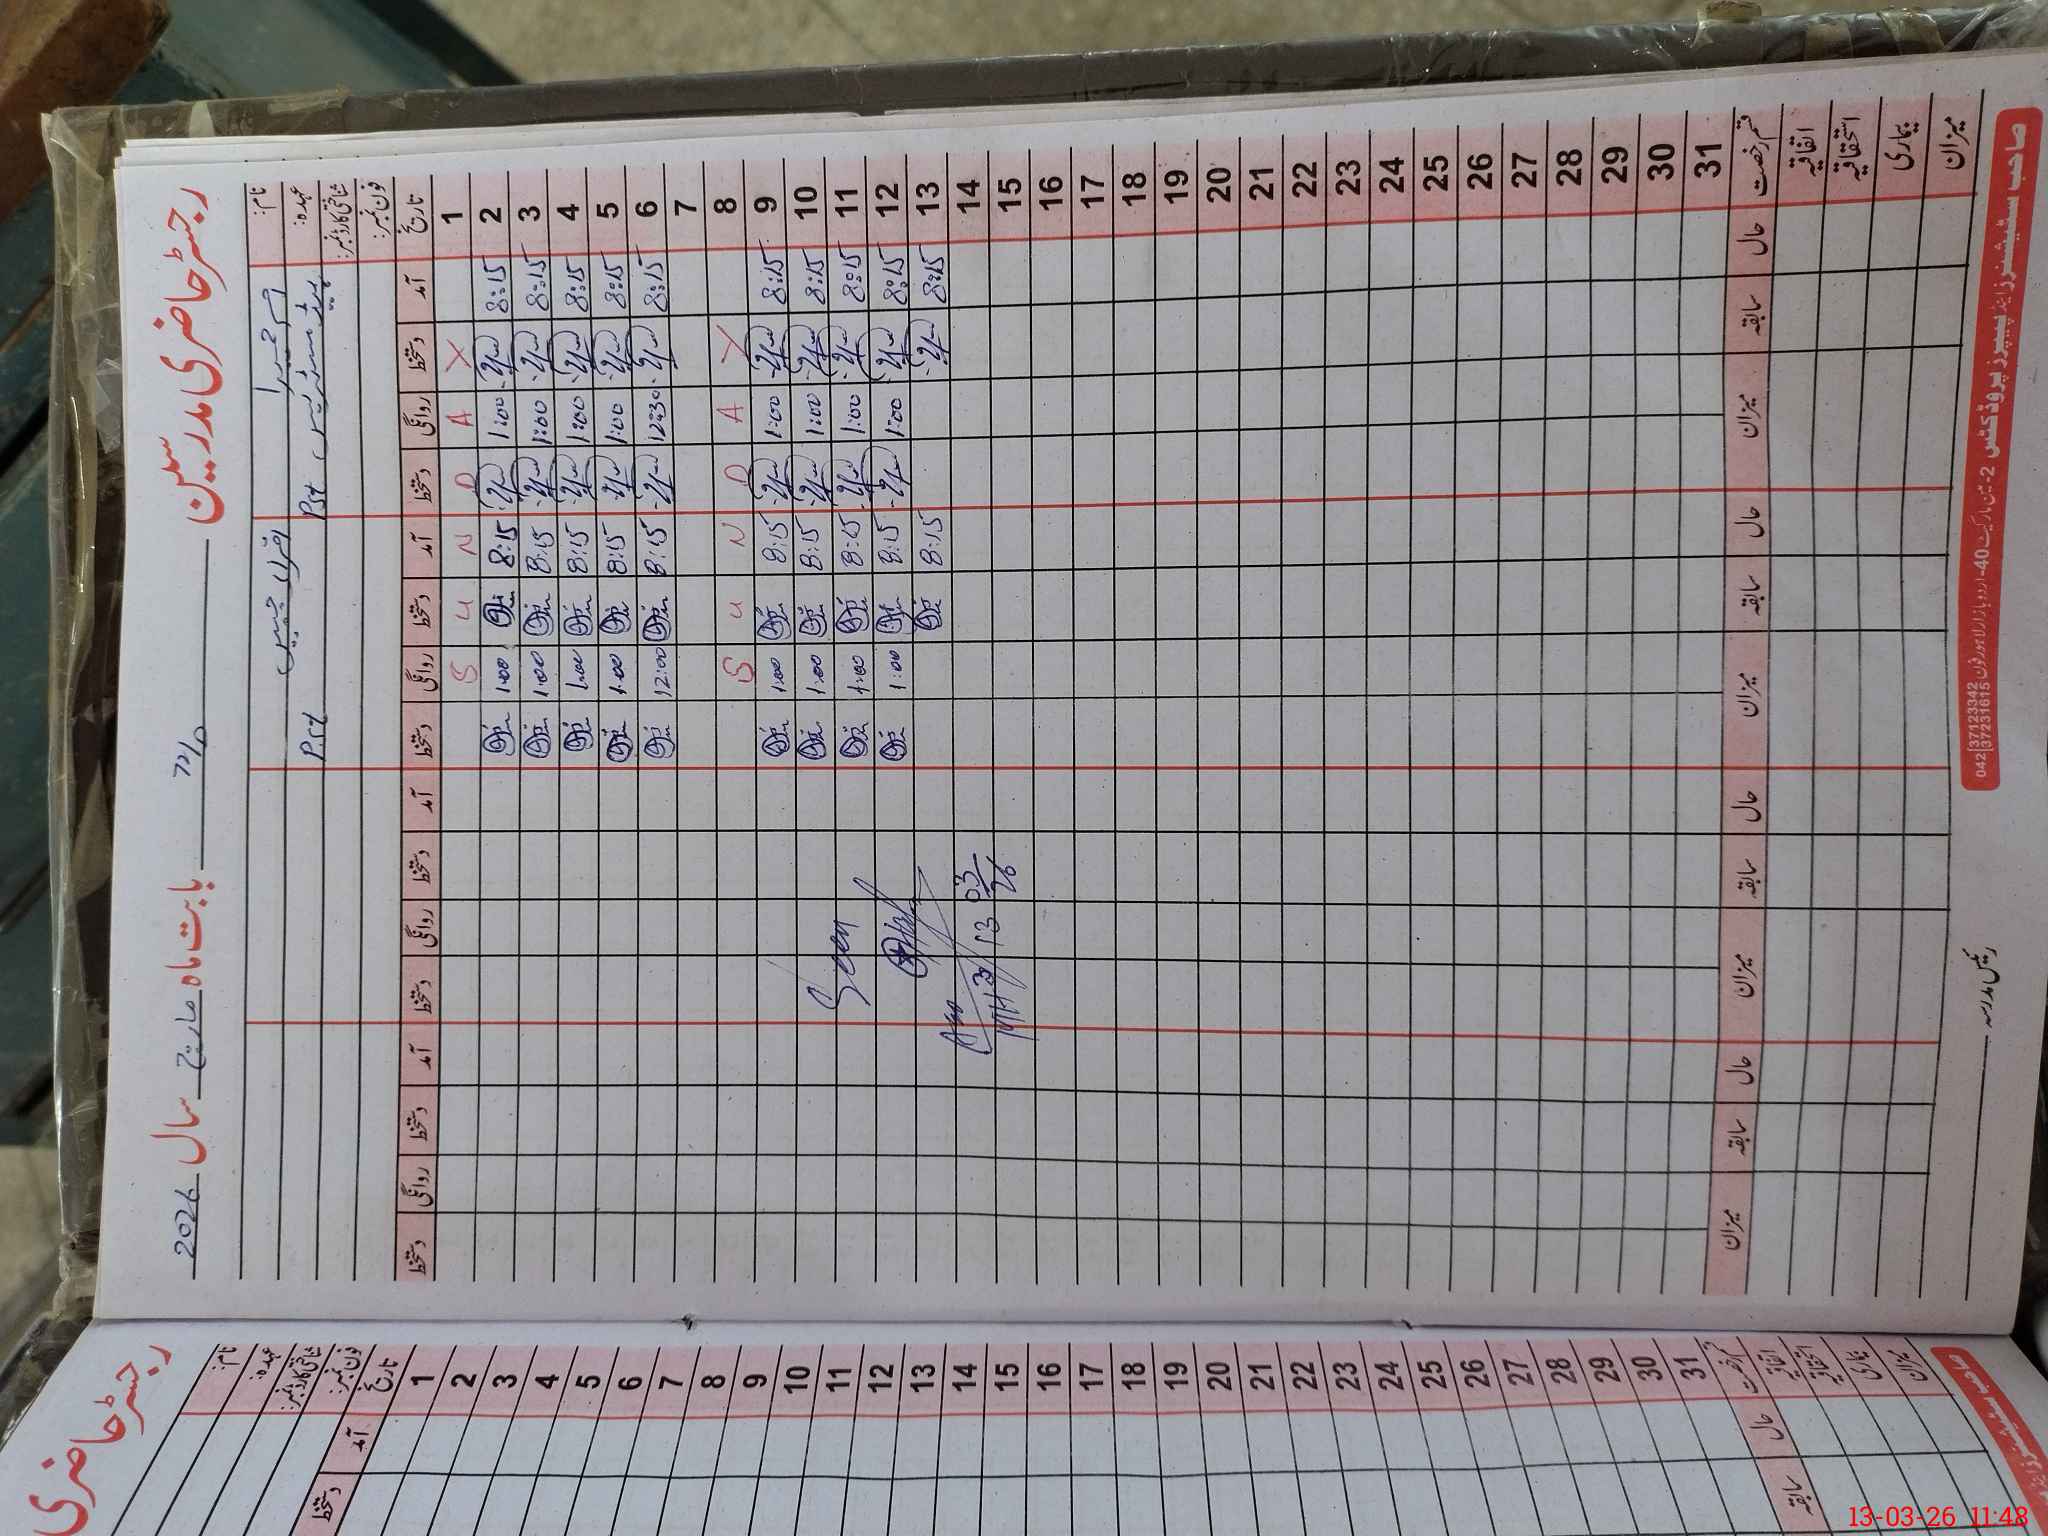 رجسٹر حاضری مدرسین بابت ماہ مارچ سال 2026
نام:
عہدہ: Pst Pst
شناختی کارڈ نمبر:
فون نمبر:
تاریخ آمد دستخط روانگی دستخط آمد دستخط روانگی دستخط آمد دستخط روانگی دستخط آمد دستخط روانگی دستخط
1 S U N D A Y
2 8:15 1:00 8:15 1:00
3 8:15 1:00 8:15 1:00
4 8:15 1:00 8:15 1:00
5 8:15 1:00 8:15 1:00
6 8:15 12:30 8:15 12:00
7
8 S U N D A Y
9 8:15 1:00 8:15 1:00
10 8:15 1:00 8:15 1:00
11 8:15 1:00 8:15 1:00
12 8:15 1:00 8:15 1:00
13 8:15 8:15
14
15
16
17
18
19
20
21
22
23
24
25
26
27
28
29
30
31
Seen
13 03 26
قسم رخصت حال سابقہ میزان حال سابقہ میزان حال سابقہ میزان حال سابقہ میزان
اتفاقیہ
استحقاقیہ
بیماری
میزان
رئیس مدرسہ
صاحب سٹیشنرز اینڈ پیپرز پروڈکٹس 2-مین مارکیٹ 40-اردو بازار لاہور فون 042 37123342 37231615
رجسٹر حاضری
نام:
عہدہ:
شناختی کارڈ نمبر:
فون نمبر:
تاریخ آمد دستخط
1
2
3
4
5
6
7
8
9
10
11
12
13
14
15
16
17
18
19
20
21
22
23
24
25
26
27
28
29
30
31
قسم رخصت حال سابقہ
اتفاقیہ
استحقاقیہ
بیماری
میزان
13-03-26 11:48